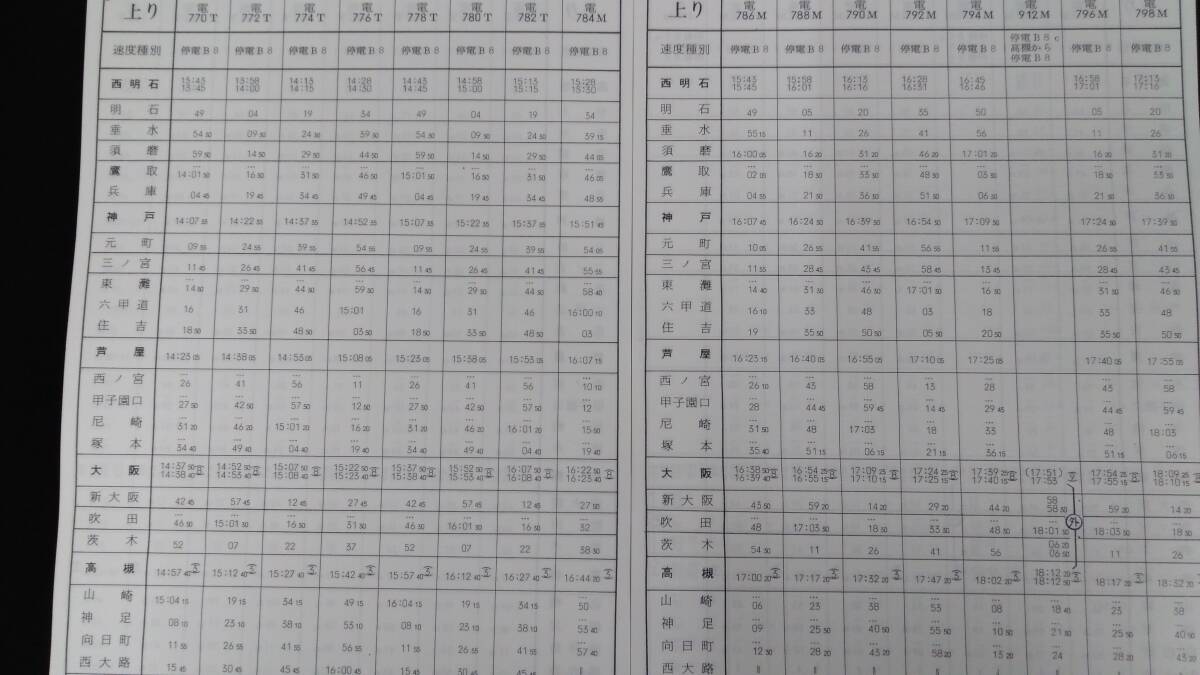 上り 電 770T 電 772T 電 774T 電 776T 電 778T 電 780T 電 782T 電 784M
速度種別 停電B8 停電B8 停電B8 停電B8 停電B8 停電B8 停電B8 停電B8
西明石 13:43 13:45 13:58 14:00 14:13 14:15 14:28 14:30 14:43 14:45 14:58 15:00 15:13 15:15 15:28 15:30
明石 49 04 19 34 49 04 19 34
垂水 54 50 09 50 24 50 39 50 54 50 09 50 24 50 39 15
須磨 59 50 14 50 29 50 44 50 59 50 14 50 29 50 44 05
鷹取 14:01 50 16 50 31 50 46 50 15:01 50 16 50 31 50 46 05
兵庫 04 45 19 45 34 45 49 45 04 45 19 45 34 45 48 55
神戸 14:07 55 14:22 55 14:37 55 14:52 55 15:07 55 15:22 55 15:37 55 15:51 45
元町 09 55 24 55 39 55 54 55 09 55 24 55 39 55 54 05
三ノ宮 11 45 26 45 41 45 56 45 11 45 26 45 41 45 55 55
東灘 14 50 29 50 44 50 59 50 14 50 29 50 44 50 58 40
六甲道 16 31 46 15:01 16 31 46 16:00 10
住吉 18 50 33 50 48 50 03 50 18 50 33 50 48 50 03
芦屋 14:23 05 14:38 05 14:53 05 15:08 05 15:23 05 15:38 05 15:53 05 16:07 15
西ノ宮 26 41 56 11 26 41 56 10 10
甲子園口 27 50 42 50 57 50 12 50 27 50 42 50 57 50 12
尼崎 31 20 46 20 15:01 20 16 20 31 20 46 20 16:01 20 15 50
塚本 34 40 49 40 04 40 19 40 34 40 49 40 04 40 19 40
大阪 14:37 50 14:38 40 14:52 50 14:53 40 15:07 50 15:08 40 15:22 50 15:23 40 15:37 50 15:38 40 15:52 50 15:53 40 16:07 50 16:08 40 16:22 50 16:23 40
新大阪 42 45 57 45 12 45 27 45 42 45 57 45 12 45 27 50
吹田 46 50 15:01 50 16 50 31 50 46 50 16:01 50 16 50 32
茨木 52 07 22 37 52 07 22 38 50
高槻 14:57 40 15:12 40 15:27 40 15:42 40 15:57 40 16:12 40 16:27 40 16:44 20
山崎 15:04 15 19 15 34 15 49 15 16:04 15 19 15 34 15 50
神足 08 10 23 10 38 10 53 10 08 10 23 10 38 10 53 40
向日町 11 55 26 55 41 55 56 55 11 55 26 55 41 55 57 40
西大路 15 45 30 45 45 45 16:00 45 15 45 30 45 45 45
上り 電 786M 電 788M 電 790M 電 792M 電 794M 電 912M 電 796M 電 798M
速度種別 停電B8 停電B8 停電B8 停電B8 停電B8 停電B8c 高槻から 停電B8 停電B8 停電B8
西明石 15:43 15:45 15:58 16:01 16:13 16:16 16:28 16:31 16:45 16:46 16:58 17:01 17:13 17:16
明石 49 05 20 35 50 05 20
垂水 55 15 11 26 41 56 11 26
須磨 16:00 05 16 20 31 20 46 20 17:01 20 16 20 31 20
鷹取 02 05 18 50 33 50 48 50 03 50 18 50 33 50
兵庫 04 55 21 50 36 50 51 50 06 50 21 50 36 50
神戸 16:07 45 16:24 50 16:39 50 16:54 50 17:09 50 17:24 50 17:39 50
元町 10 05 26 55 41 55 56 55 11 55 26 55 41 55
三ノ宮 11 55 28 45 43 45 58 45 13 45 28 45 43 45
東灘 14 40 31 50 46 50 17:01 50 16 50 31 50 46 50
六甲道 16 10 33 48 03 18 33 48
住吉 19 35 50 50 50 05 50 20 50 35 50 50 50
芦屋 16:23 15 16:40 05 16:55 05 17:10 05 17:25 05 17:40 05 17:55 05
西ノ宮 26 10 43 58 13 28 43 58
甲子園口 28 44 45 59 45 14 45 29 45 44 45 59 45
尼崎 31 50 48 17:03 18 33 48 18:03
塚本 35 40 51 15 06 15 21 15 36 15 51 15 06 15
大阪 16:38 50 16:39 40 16:54 25 16:55 15 17:09 25 17:10 15 17:24 25 17:25 15 17:39 25 17:40 15 (17:51) 17:53 17:54 25 17:55 15 18:09 25 18:10 15
新大阪 43 50 59 20 14 20 29 20 44 20 58 58 50 59 20 14 20
吹田 48 17:03 50 18 50 33 50 48 50 18:01 50 外 18:03 50 18 50
茨木 54 50 11 26 41 56 06 20 06 50 11 26
高槻 17:00 20 17:17 20 17:32 20 17:47 20 18:02 20 18:12 20 18:12 50 18:17 20 18:32 20
山崎 06 23 38 53 08 18 40 23 38
神足 09 25 50 40 50 55 50 10 50 21 50 25 50 40 50
向日町 12 50 28 20 43 20 58 20 13 20 24 28 20 43 20
西大路